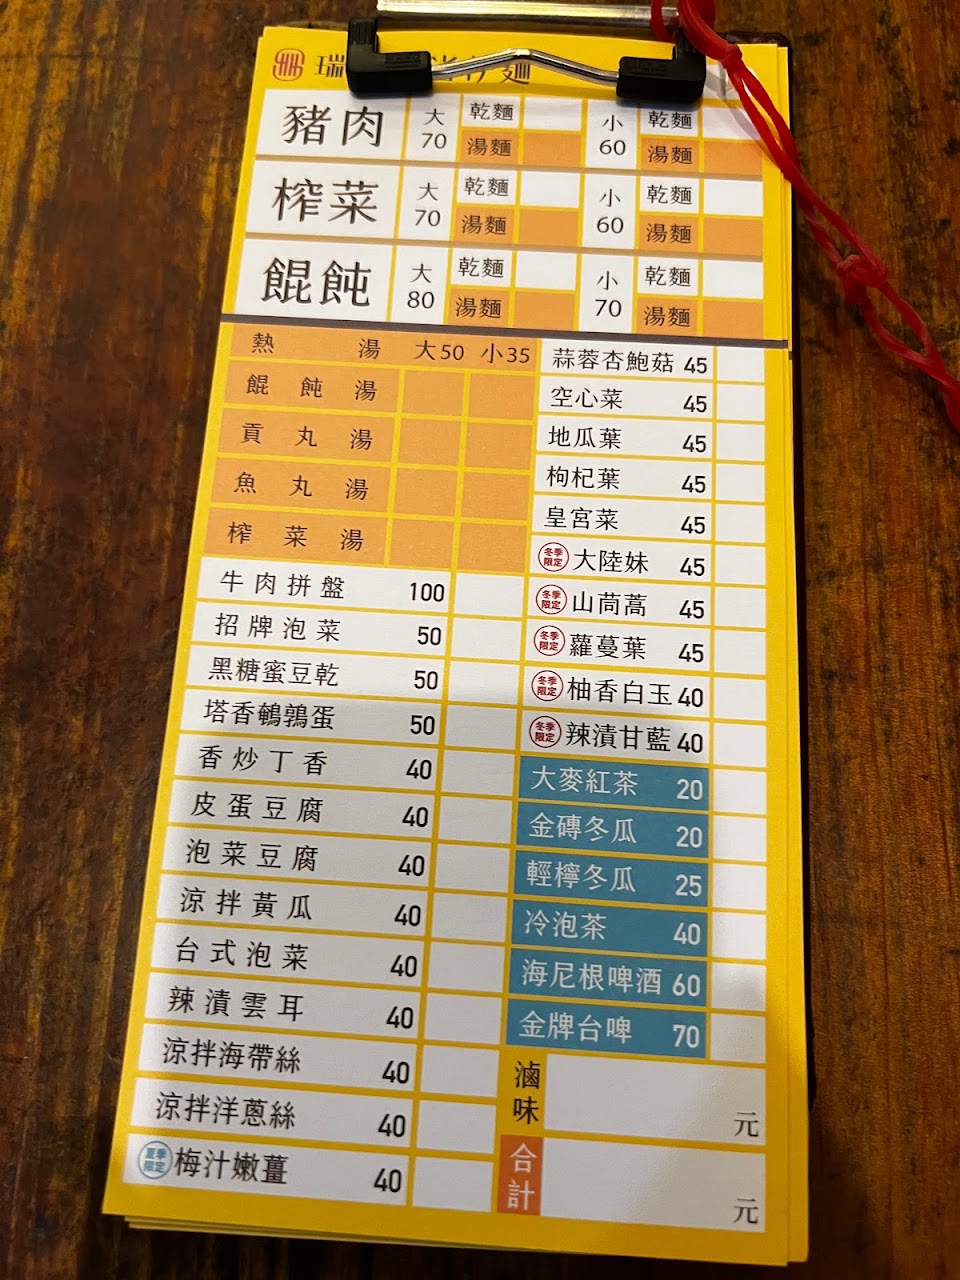 瑞
麵
豬肉 大 70 乾麵 湯麵 小 60 乾麵 湯麵
榨菜 大 70 乾麵 湯麵 小 60 乾麵 湯麵
餛飩 大 80 乾麵 湯麵 小 70 乾麵 湯麵
熱湯 大50 小35
餛飩湯
貢丸湯
魚丸湯
榨菜湯
牛肉拼盤 100
招牌泡菜 50
黑糖蜜豆乾 50
塔香鵪鶉蛋 50
香炒丁香 40
皮蛋豆腐 40
泡菜豆腐 40
涼拌黃瓜 40
台式泡菜 40
辣漬雲耳 40
涼拌海帶絲 40
涼拌洋蔥絲 40
夏季限定 梅汁嫩薑 40
蒜蓉杏鮑菇 45
空心菜 45
地瓜葉 45
枸杞葉 45
皇宮菜 45
冬季限定 大陸妹 45
冬季限定 山茼蒿 45
冬季限定 蘿蔓葉 45
冬季限定 柚香白玉 40
冬季限定 辣漬甘藍 40
大麥紅茶 20
金磚冬瓜 20
輕檸冬瓜 25
冷泡茶 40
海尼根啤酒 60
金牌台啤 70
滷味 元
合計 元